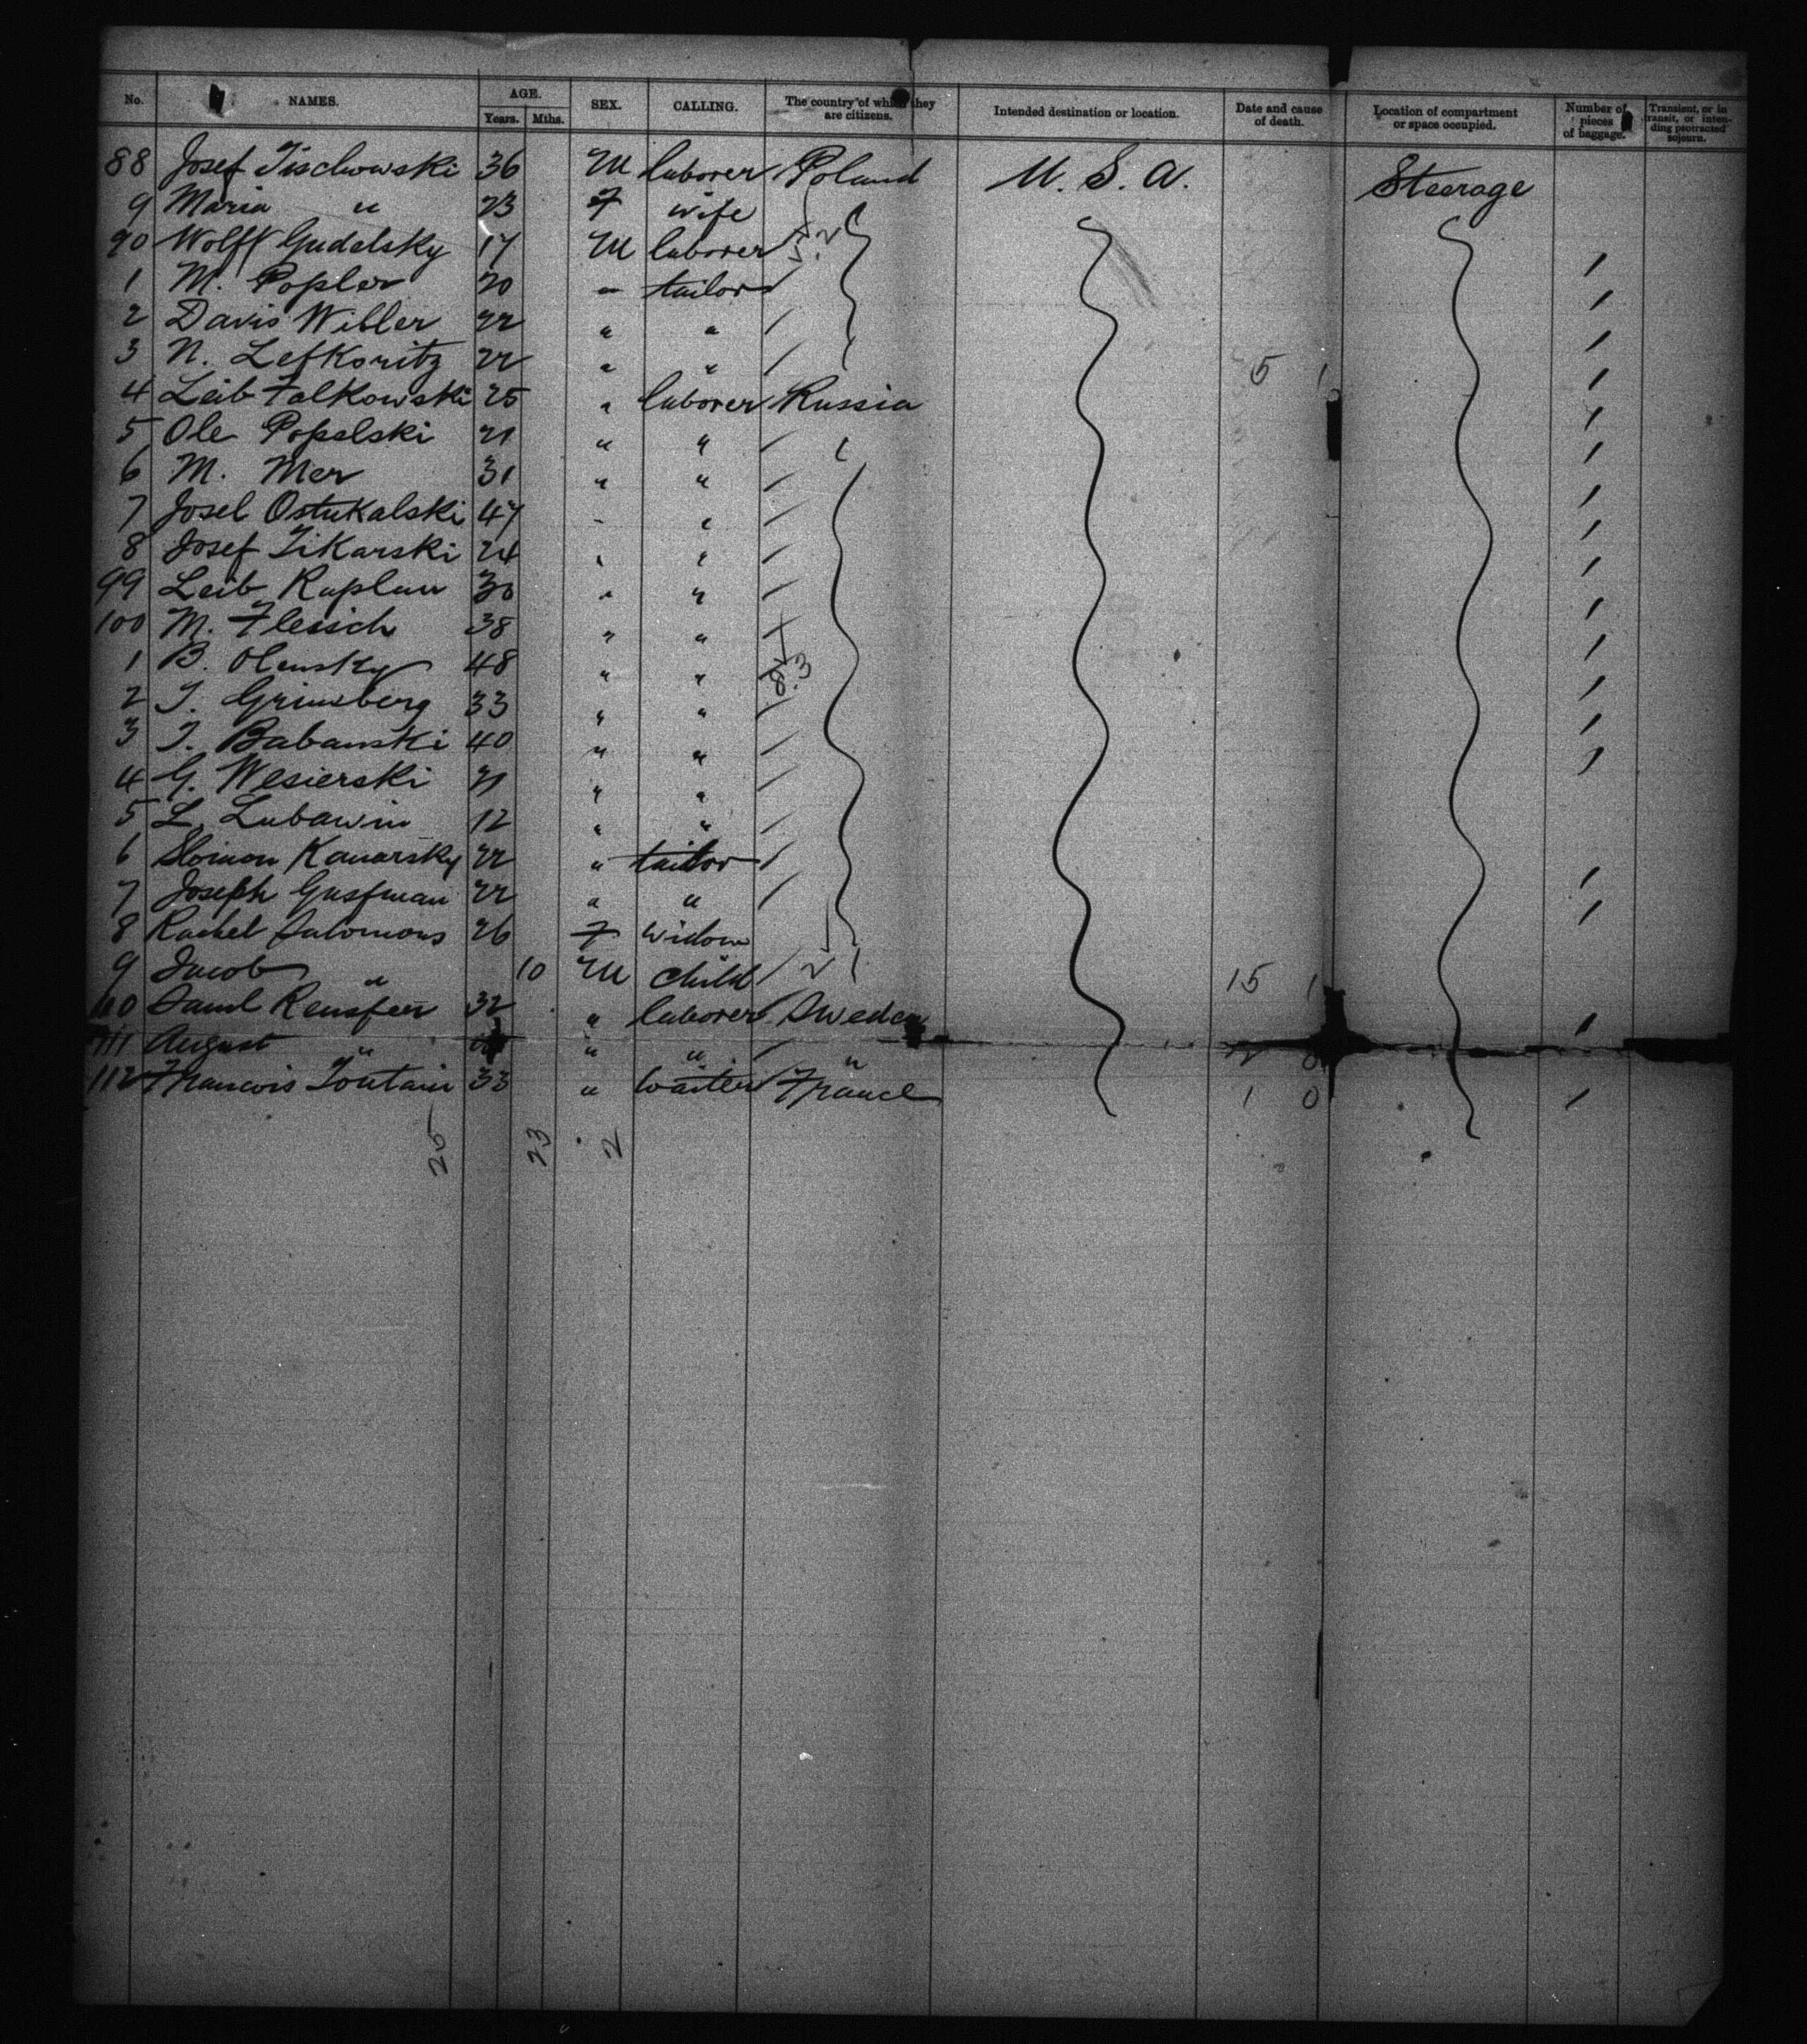 No. NAMES. AGE. Years. Mths. SEX. CALLING. The country of which they are citizens. Intended destination or location. Date and cause of death. Location of compartment or space occupied. Number of pieces of baggage. Transient, or in transit, or intending protracted sojourn.
88 Josef Tischowski 36 M laborer Poland U. S. A. Steerage
9 Maria " 23 F wife
90 Wolff Gudelsky 17 M laborer /
1 M. Popler 20 " tailor /
2 Davis Wibler 22 " " /
3 N. Lefkoritz 22 " " 5 1 /
4 Leib Falkowski 25 " laborer Russia /
5 Ole Popelski 21 " " /
6 M. Mer 31 " " /
7 Josel Ostukalski 47 " " /
8 Josef Tikarski 24 " " /
99 Leib Kaplan 30 " " /
100 M. Fleisch 38 " " /
1 B. Olensky 48 " " /
2 T. Grinsberg 33 " " /
3 T. Babanski 40 " " /
4 G. Wesierski 21 " "
5 L. Lubawin 12 " "
6 Slomon Kanarsky 22 " tailor /
7 Joseph Gusfman 22 " " /
8 Rachel Salomons 26 F widow
9 Jacob " 10 M child 15 1
110 Saml Rensfeer 32 " laborer Sweden /
111 August " " " "
112 Francois Toutain 33 " waiter France 1 0 /
25 23 2